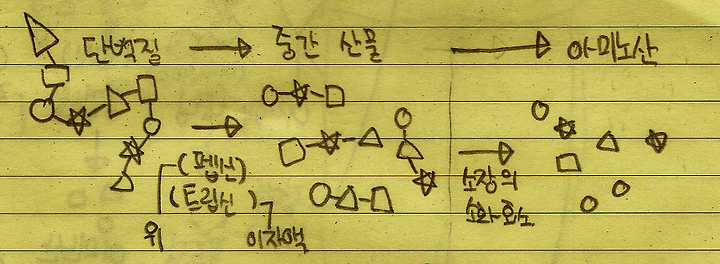 단백질 → 중간 산물 → 아미노산
(펩신)
(트립신)
위
이자액
소장의
소화효소